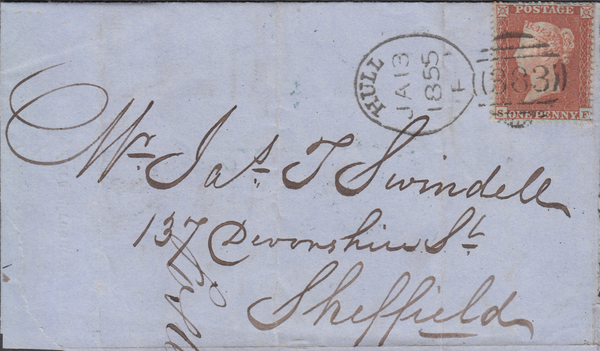 POSTAGE
S ONE PENNY F
HULL
JA 13
1855
F
383
Mr. Jas. T Swindell
137 Devonshire St.
Sheffield